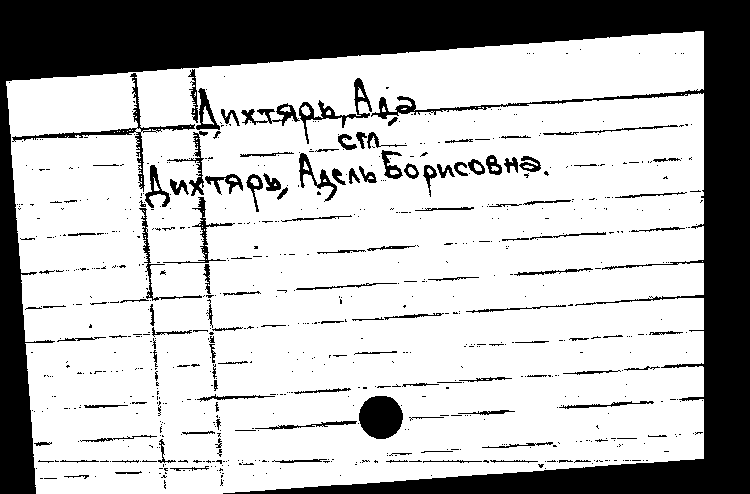 Дихтярь, Ада
см
Дихтярь, Адель Борисовна.